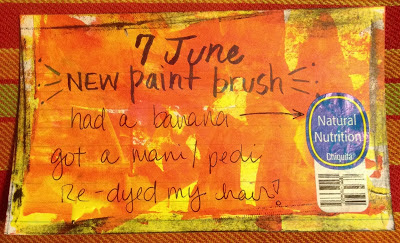 7 June
NEW paint brush
had a banana
got a mani/pedi
Re-dyed my hair!
Natural
Nutrition
Chiquita